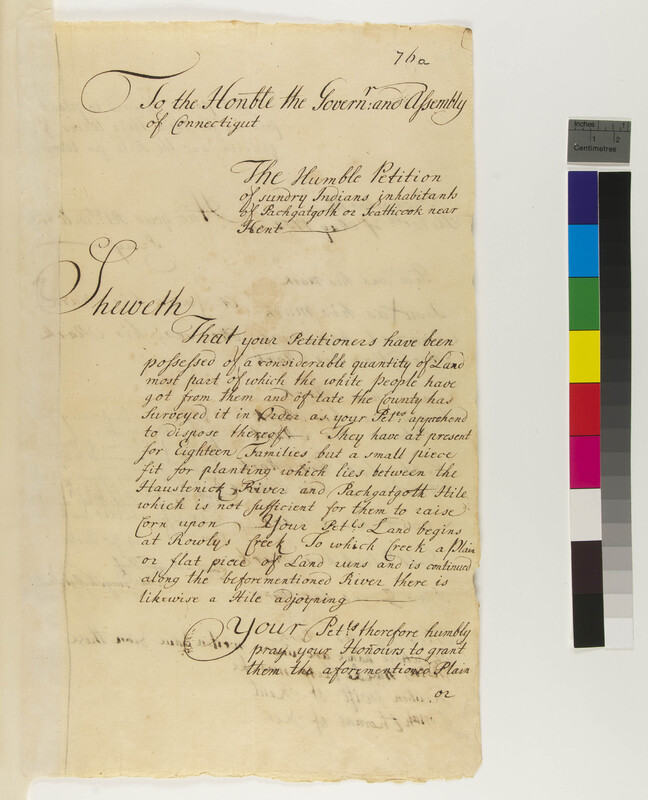 76a
To the Honble the Governr: and Assembly
of Connectigut
The Humble Petition
of sundry Indians inhabitants
of Pachgatgoth or Scatticook near
Kent
Sheweth
That your Petitioners have been
possessed of a considerable quantity of Land
most part of which the white People have
got from them and of late the County has
Surveyed it in Order as your Pet.rs apprehend
to dispose thereof. They have at present
for Eighteen Families but a small piece
fit for planting which lies between the
Haustenick River and Pachgatgoth Hile
which is not sufficient for them to raise
Corn upon Your Pet.rs Land begins
at Rowlys Creek To which Creek a Plain
or flat piece of Land runs and is continued
along the beforementioned River there is
likewise a Hile adjoyning
Your Pet.rs therefore humbly
pray your Honours to grant
them the aforementioned Plain
or
Inches 1
1 2
Centimetres